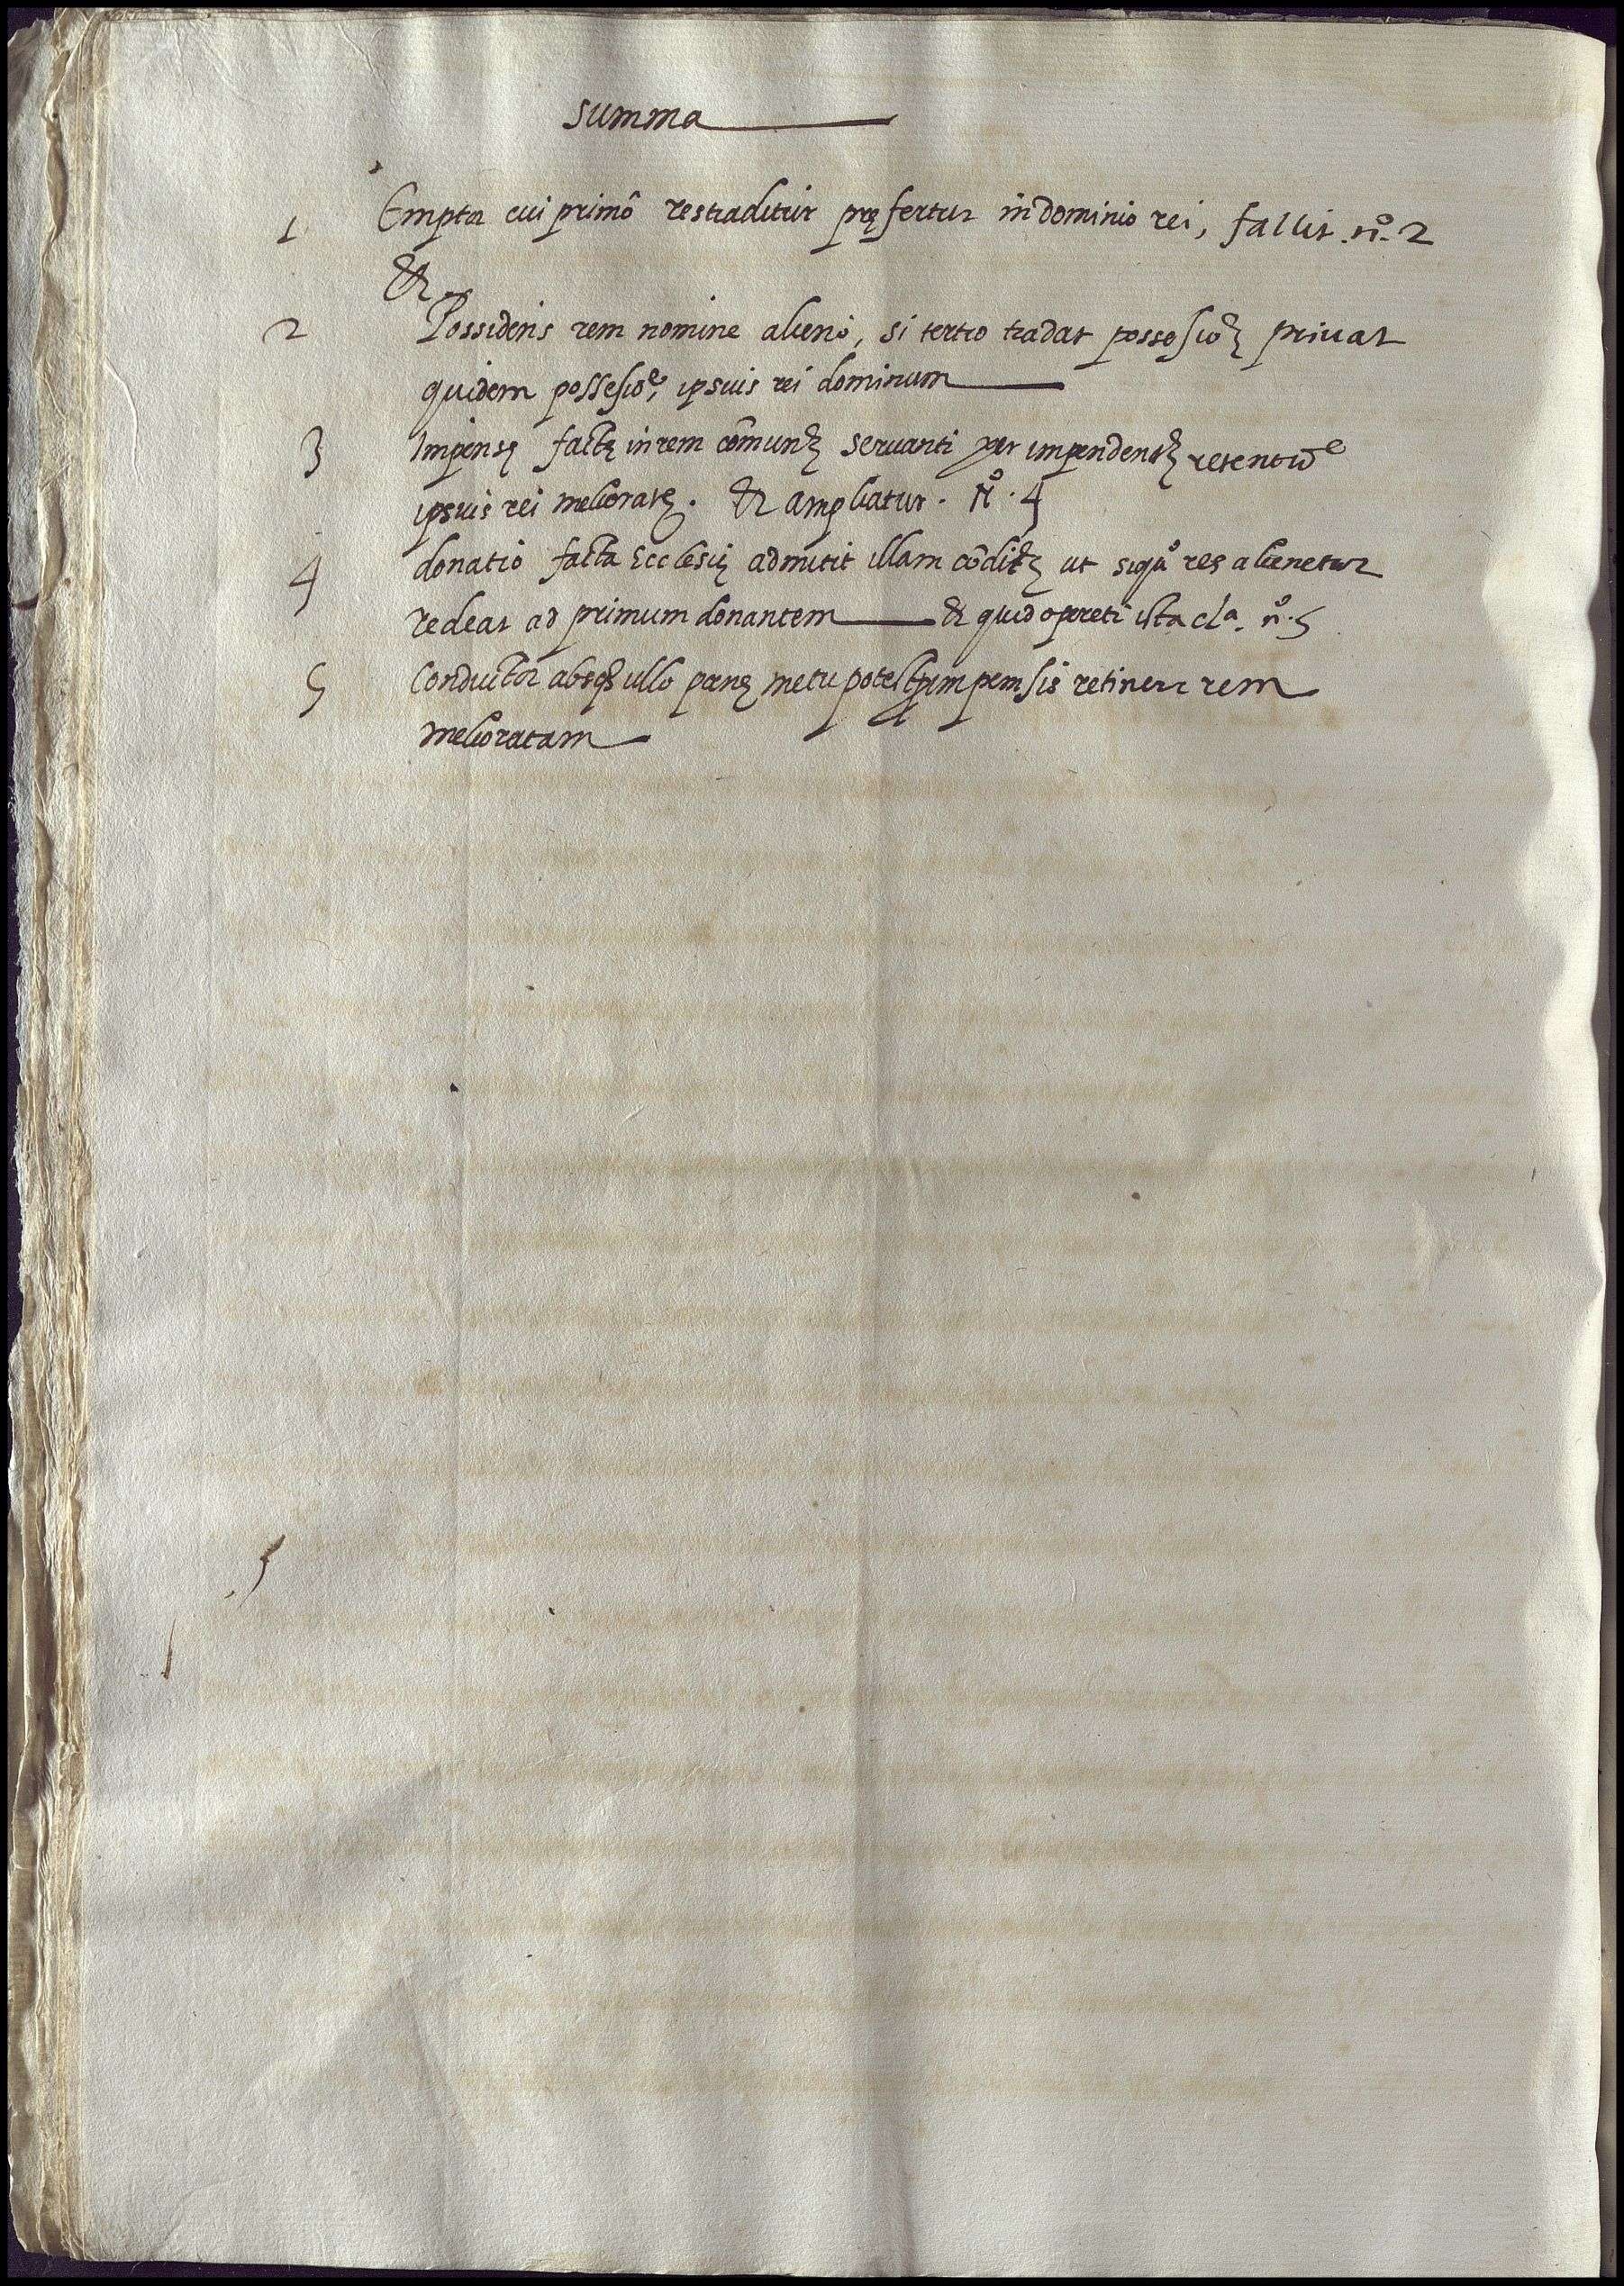 summa
1 Emptor cui primô res traditur pręfertur in dominio rei, fallit. nº. 2
&
2 Possidens rem nomine alieno, si tertio tradat possesioẽ privat
quidem possesioe, ipsius rei dominum
3 Impensę factę in rem cõmunẽ servanti per impendentẽ retentioe
ipsius rei melioratę. & ampliatur. Nº. 4
4 donatio facta Ecclesię admitit illam cõditẽ ut siquº res alienetur
redeat ad primum donantem & quid operetur ista cla. nº. 5
5 Conductor absq, ullo penę metu potest impensis retinere rem
melioratam